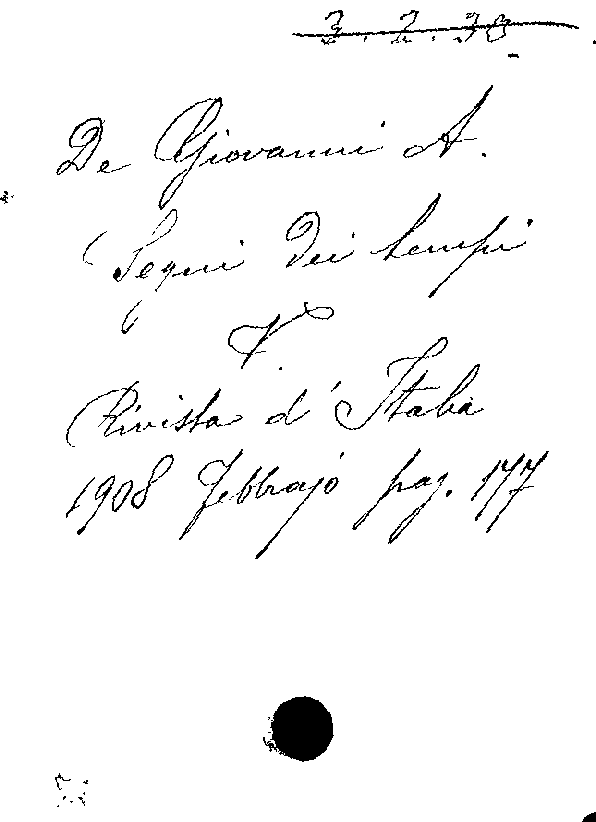 3.2.33
De Giovanni A.
Segni dei tempi
V.
Rivista d'Italia
1908 Febbrajo pag. 177